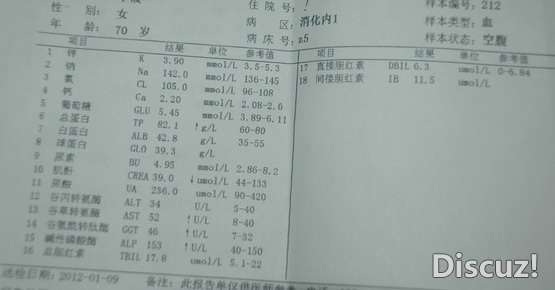 性 别: 女
年 龄: 70 岁
住院号:
病 区: 消化内1
病床号: z5
样本编号: 212
样本类型: 血
样本状态: 空腹
项目 结果 单位 参考值
1 钾 K 3.9 mmol/L 3.5-5.3
2 钠 Na 142.0 mmol/L 136-145
3 氯 CL 105.0 mmol/L 96-108
4 钙 Ca 2.20 mmol/L 2.08-2.6
5 葡萄糖 GLU 5.45 mmol/L 3.89-6.11
6 总蛋白 TP 82.1 ↑g/L 60-80
7 白蛋白 ALB 42.8 g/L 35-55
8 球蛋白 GLO 39.3 g/L
9 尿素 BU 4.95 mmol/L 2.86-8.2
10 肌酐 CREA 39.0 ↓umol/L 44-133
11 尿酸 UA 256.0 umol/L 90-420
12 谷丙转氨酶 ALT 34 U/L 5-40
13 谷草转氨酶 AST 52 ↑U/L 8-40
14 谷氨酰转肽酶 GGT 46 ↑U/L 7-32
15 碱性磷酸酶 ALP 153 ↑U/L 40-150
16 总胆红素 TBIL 17.8 umol/L 5.1-22
项目 结果 单位 参考值
17 直接胆红素 DBIL 6.3 umol/L 0-6.84
18 间接胆红素 IB 11.5 umol/L
送检日期: 2012-01-09
备注: 此报告单仅供医师参考
Discuz!